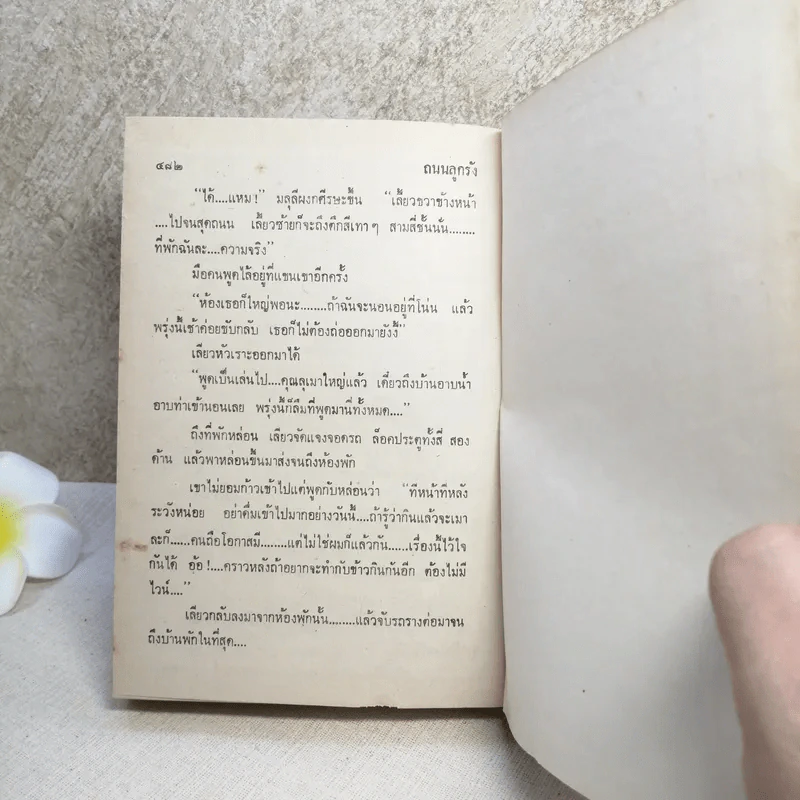 ๔๘๒ ถนนลูกรัง
“ได้....แหม!” มลุลีผงกศีรษะขึ้น “เลี้ยวขวาข้างหน้า
....ไปจนสุดถนน เลี้ยวซ้ายก็จะถึงตึกสีเทาๆ สามสี่ชั้นนั่น........
ที่พักฉันละ....ความจริง”
มือคนพูดไล้อยู่ที่แขนเขาอีกครั้ง
“ห้องเธอก็ใหญ่พอนะ........ถ้าฉันจะนอนอยู่ที่โน่น แล้ว
พรุ่งนี้เช้าค่อยขับกลับ เธอก็ไม่ต้องถ่อออกมายังงี้”
เลียวหัวเราะออกมาได้
“พูดเป็นเล่นไป....คุณลุเมาใหญ่แล้ว เดี๋ยวถึงบ้านอาบน้ำ
อาบท่าเข้านอนเลย พรุ่งนี้ก็ลืมที่พูดมานี่ทั้งหมด....”
ถึงที่พักหล่อน เลียวจัดแจงจอดรถ ล็อคประตูทั้งสี่ สอง
ด้าน แล้วพาหล่อนขึ้นมาส่งจนถึงห้องพัก
เขาไม่ยอมก้าวเข้าไปแต่พูดกับหล่อนว่า “ทีหน้าทีหลัง
ระวังหน่อย อย่าดื่มเข้าไปมากอย่างวันนี้....ถ้ารู้ว่ากินแล้วจะเมา
ละก็......คนถือโอกาสมี........แต่ไม่ใช่ผมก็แล้วกัน......เรื่องนี้ไว้ใจ
กันได้ อ้อ!....คราวหลังถ้าอยากจะทำกับข้าวกินกันอีก ต้องไม่มี
ไวน์....”
เลียวกลับลงมาจากห้องพักนั้น........แล้วจับรถรางต่อมาจน
ถึงบ้านพักในที่สุด....